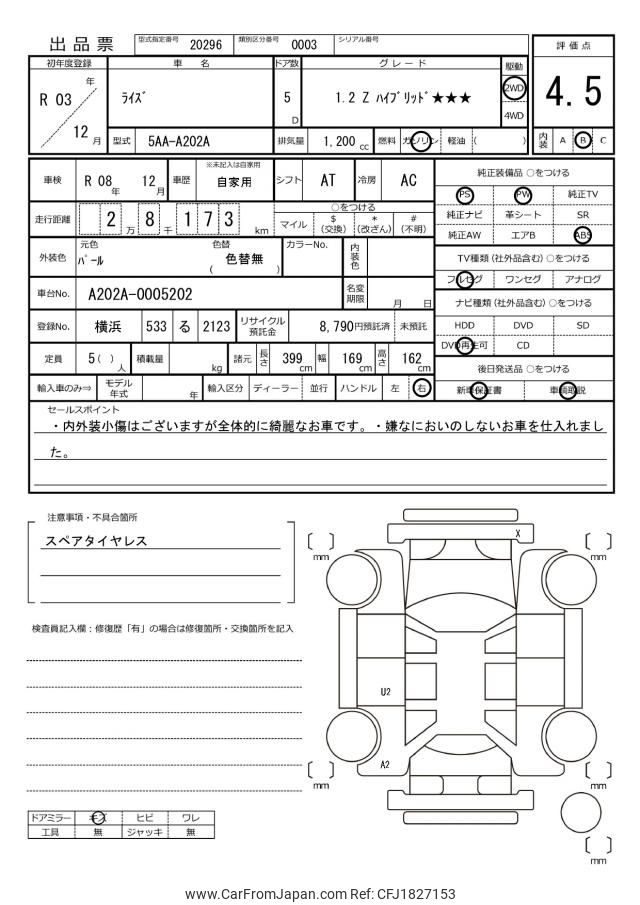 出品票
型式指定番号 20296 類別区分番号 0003 シリアル番号
評価点
初年度登録 車名 ドア数 グレード 駆動
R 03 年 12 月
ライズ 5 D 1.2 Z ハイブリッド★★★ 2WD 4WD
4.5
型式 5AA-A202A 排気量 1,200 cc 燃料 ガソリン 軽油 ( ) 内装 A B C
車検 R 08 年 12 月 車歴 ※未記入は自家用 自家用 シフト AT 冷房 AC
純正装備品 ○をつける
PS PW 純正TV
純正ナビ 革シート SR
純正AW エアB ABS
走行距離 2 万 8 千 1 7 3 km
○をつける
マイル $ (交換) * (改ざん) # (不明)
外装色 元色 パール 色替 色替無 ( ) カラーNo. 内装色
TV種類(社外品含む)○をつける
フルセグ ワンセグ アナログ
車台No. A202A-0005202 名変期限 月 日
ナビ種類(社外品含む)○をつける
HDD DVD SD
DVD再生可 CD
登録No. 横浜 533 る 2123 リサイクル預託金 8,790円預託済 未預託
定員 5( ) 人 積載量 kg 諸元 長さ 399 cm 幅 169 cm 高さ 162 cm
後日発送品 ○をつける
新車保証書 車輌取説
輸入車のみ⇒ モデル年式 年 輸入区分 ディーラー 並行 ハンドル 左 右
セールスポイント
・内外装小傷はございますが全体的に綺麗なお車です。・嫌なにおいのしないお車を仕入れまし
た。
注意事項・不具合箇所
スペアタイヤレス
検査員記入欄:修復歴「有」の場合は修復箇所・交換箇所を記入
X
mm
mm
U2
A2
mm
mm
mm
ドアミラー キズ ヒビ ワレ
工具 無 ジャッキ 無
www.CarFromJapan.com Ref: CFJ1827153